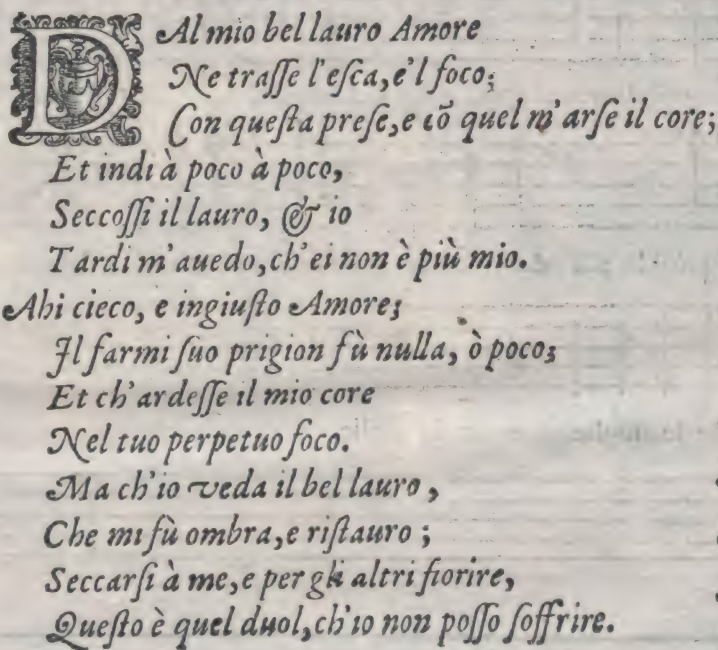 DAl mio bel lauro Amore
Ne traſſe l'eſca, e'l foco;
Con queſta preſe, e cõ quel m'arſe il core;
Et indi à poco à poco,
Seccoſſi il lauro, & io
Tardi m'auedo, ch'ei non è più mio.
Ahi cieco, e ingiuſto Amore;
Il farmi ſuo prigion fù nulla, ò poco;
Et ch'ardeſſe il mio core
Nel tuo perpetuo foco.
Ma ch'io veda il bel lauro,
Che mi fù ombra, e riſtauro;
Seccarſi à me, e per gli altri fiorire,
Queſto è quel duol, ch'io non poſſo ſoffrire.